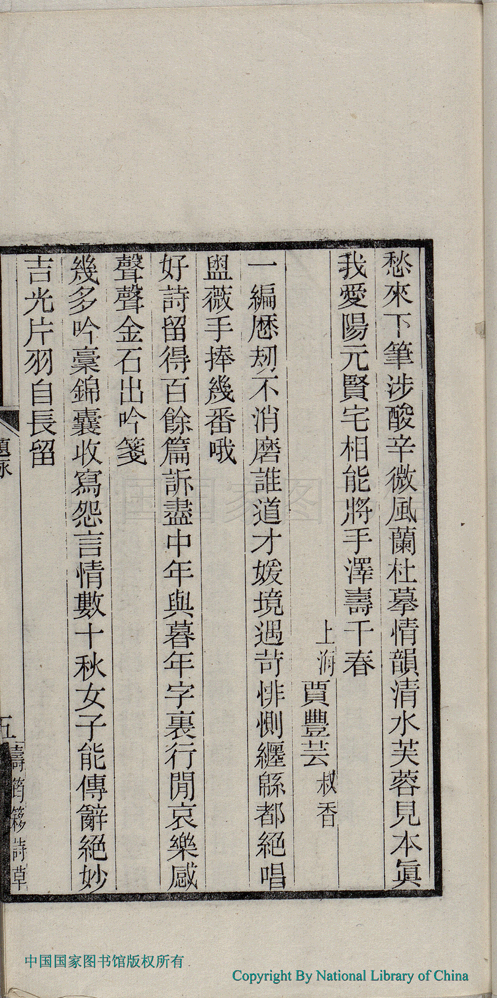 愁來下筆涉酸辛微風蘭杜摹情韻清水芙蓉見本真
我愛陽元賢宅相能將手澤壽千春
上海賈豐芸叔香
一編歷刼不消磨誰道才媛境遇苛悱惻纏緜都絕唱
盥薇手捧幾番哦
好詩留得百餘篇訴盡中年與暮年字裏行間哀樂感
聲聲金石出吟箋
幾多吟稾錦囊收寫怨言情數十秋女子能傳辭絕妙
吉光片羽自長留
題詠
五
詩草
中国国家图书馆版权所有
Copyright By National Library of China